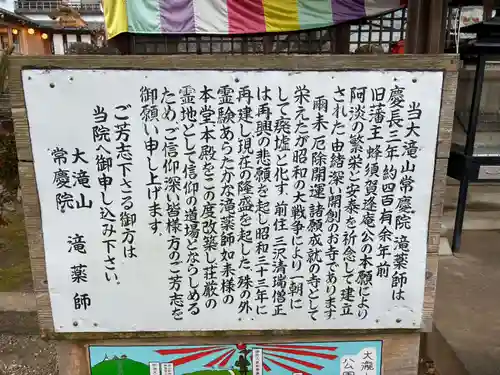 当大滝山常慶院滝薬師は
慶長三年約四百有余年前
旧藩主蜂須賀逢庵公の本願により
阿淡の繁栄と安泰を祈念して建立
された由緒深い開創のお寺であります
爾来、厄除開運、諸願成就の寺として
栄えたが昭和の大戦争により一朝に
して廃墟と化す。前住三沢清瑞僧正
は再興の悲願を起し昭和三十三年に
再建し現在の隆盛を起した。殊の外、
霊験あらたかな滝薬師如来様の
本堂本殿をこの度改築し荘厳の
霊地として信仰の道場とならしめる
ため、ご信仰深い皆様方のご芳志を
御願い申し上げます。
ご芳志下さる御方は
当院へ御申し込み下さい。
大滝山
常慶院 滝薬師
大滝
公園